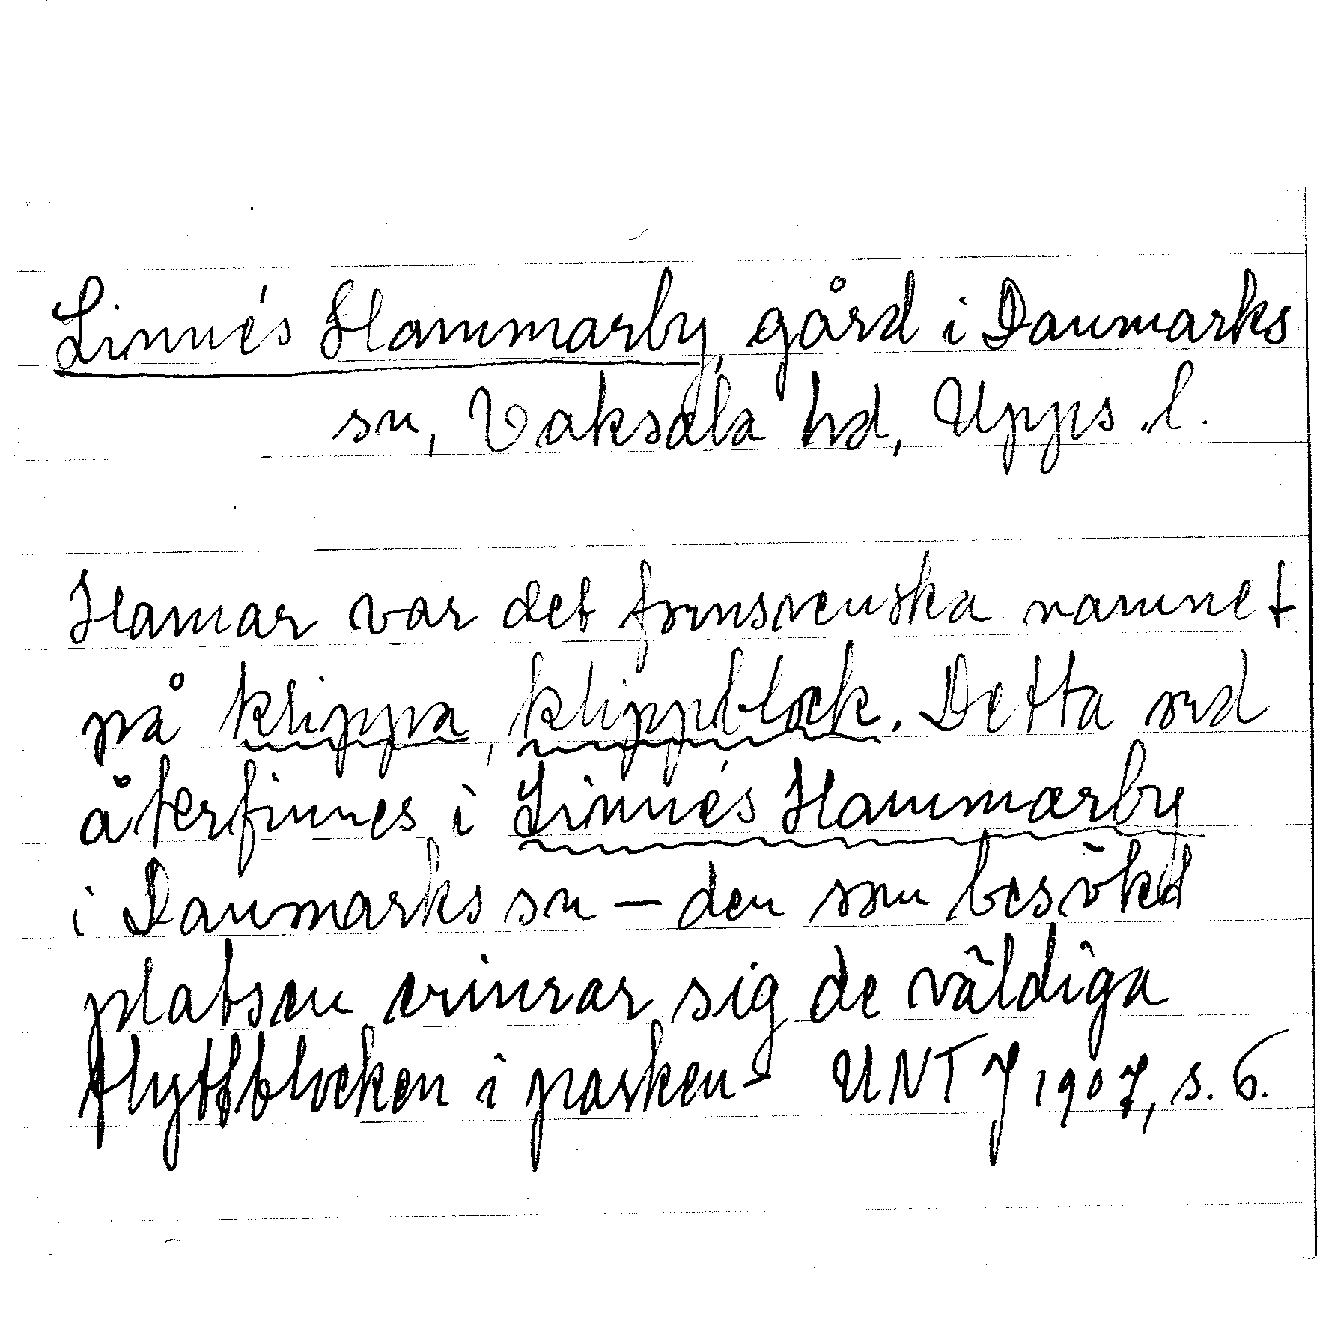 Linnés Hammarby, gård i Danmarks
sn, Vaksala hd, Upps. l.
Hamar var det fornsvenska namnet
på klippa, klippblock. Detta ord
återfinnes i Linnés Hammarby
i Danmarks sn – den som besökt
platsen erinrar sig de väldiga
flyttblocken i parken – UNT J 1907, s. 6.